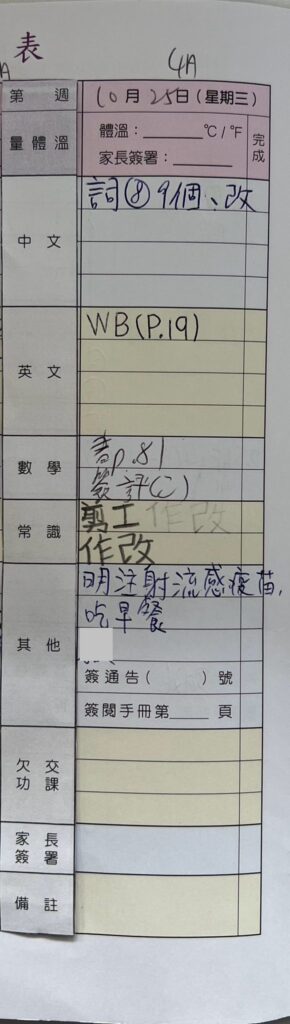 表
4A
第 週 10月25日(星期三)
量體溫 體溫:______℃/℉ 完成
家長簽署:______
中文 詞⑧9個、改
英文 WB(P.19)
數學 書p.81
簽評(乙)
常識 剪工作改
作改
其他 明注射流感疫苗,
吃早餐
簽通告( )號
簽閱手冊第____頁
欠交功課
家長簽署
備註